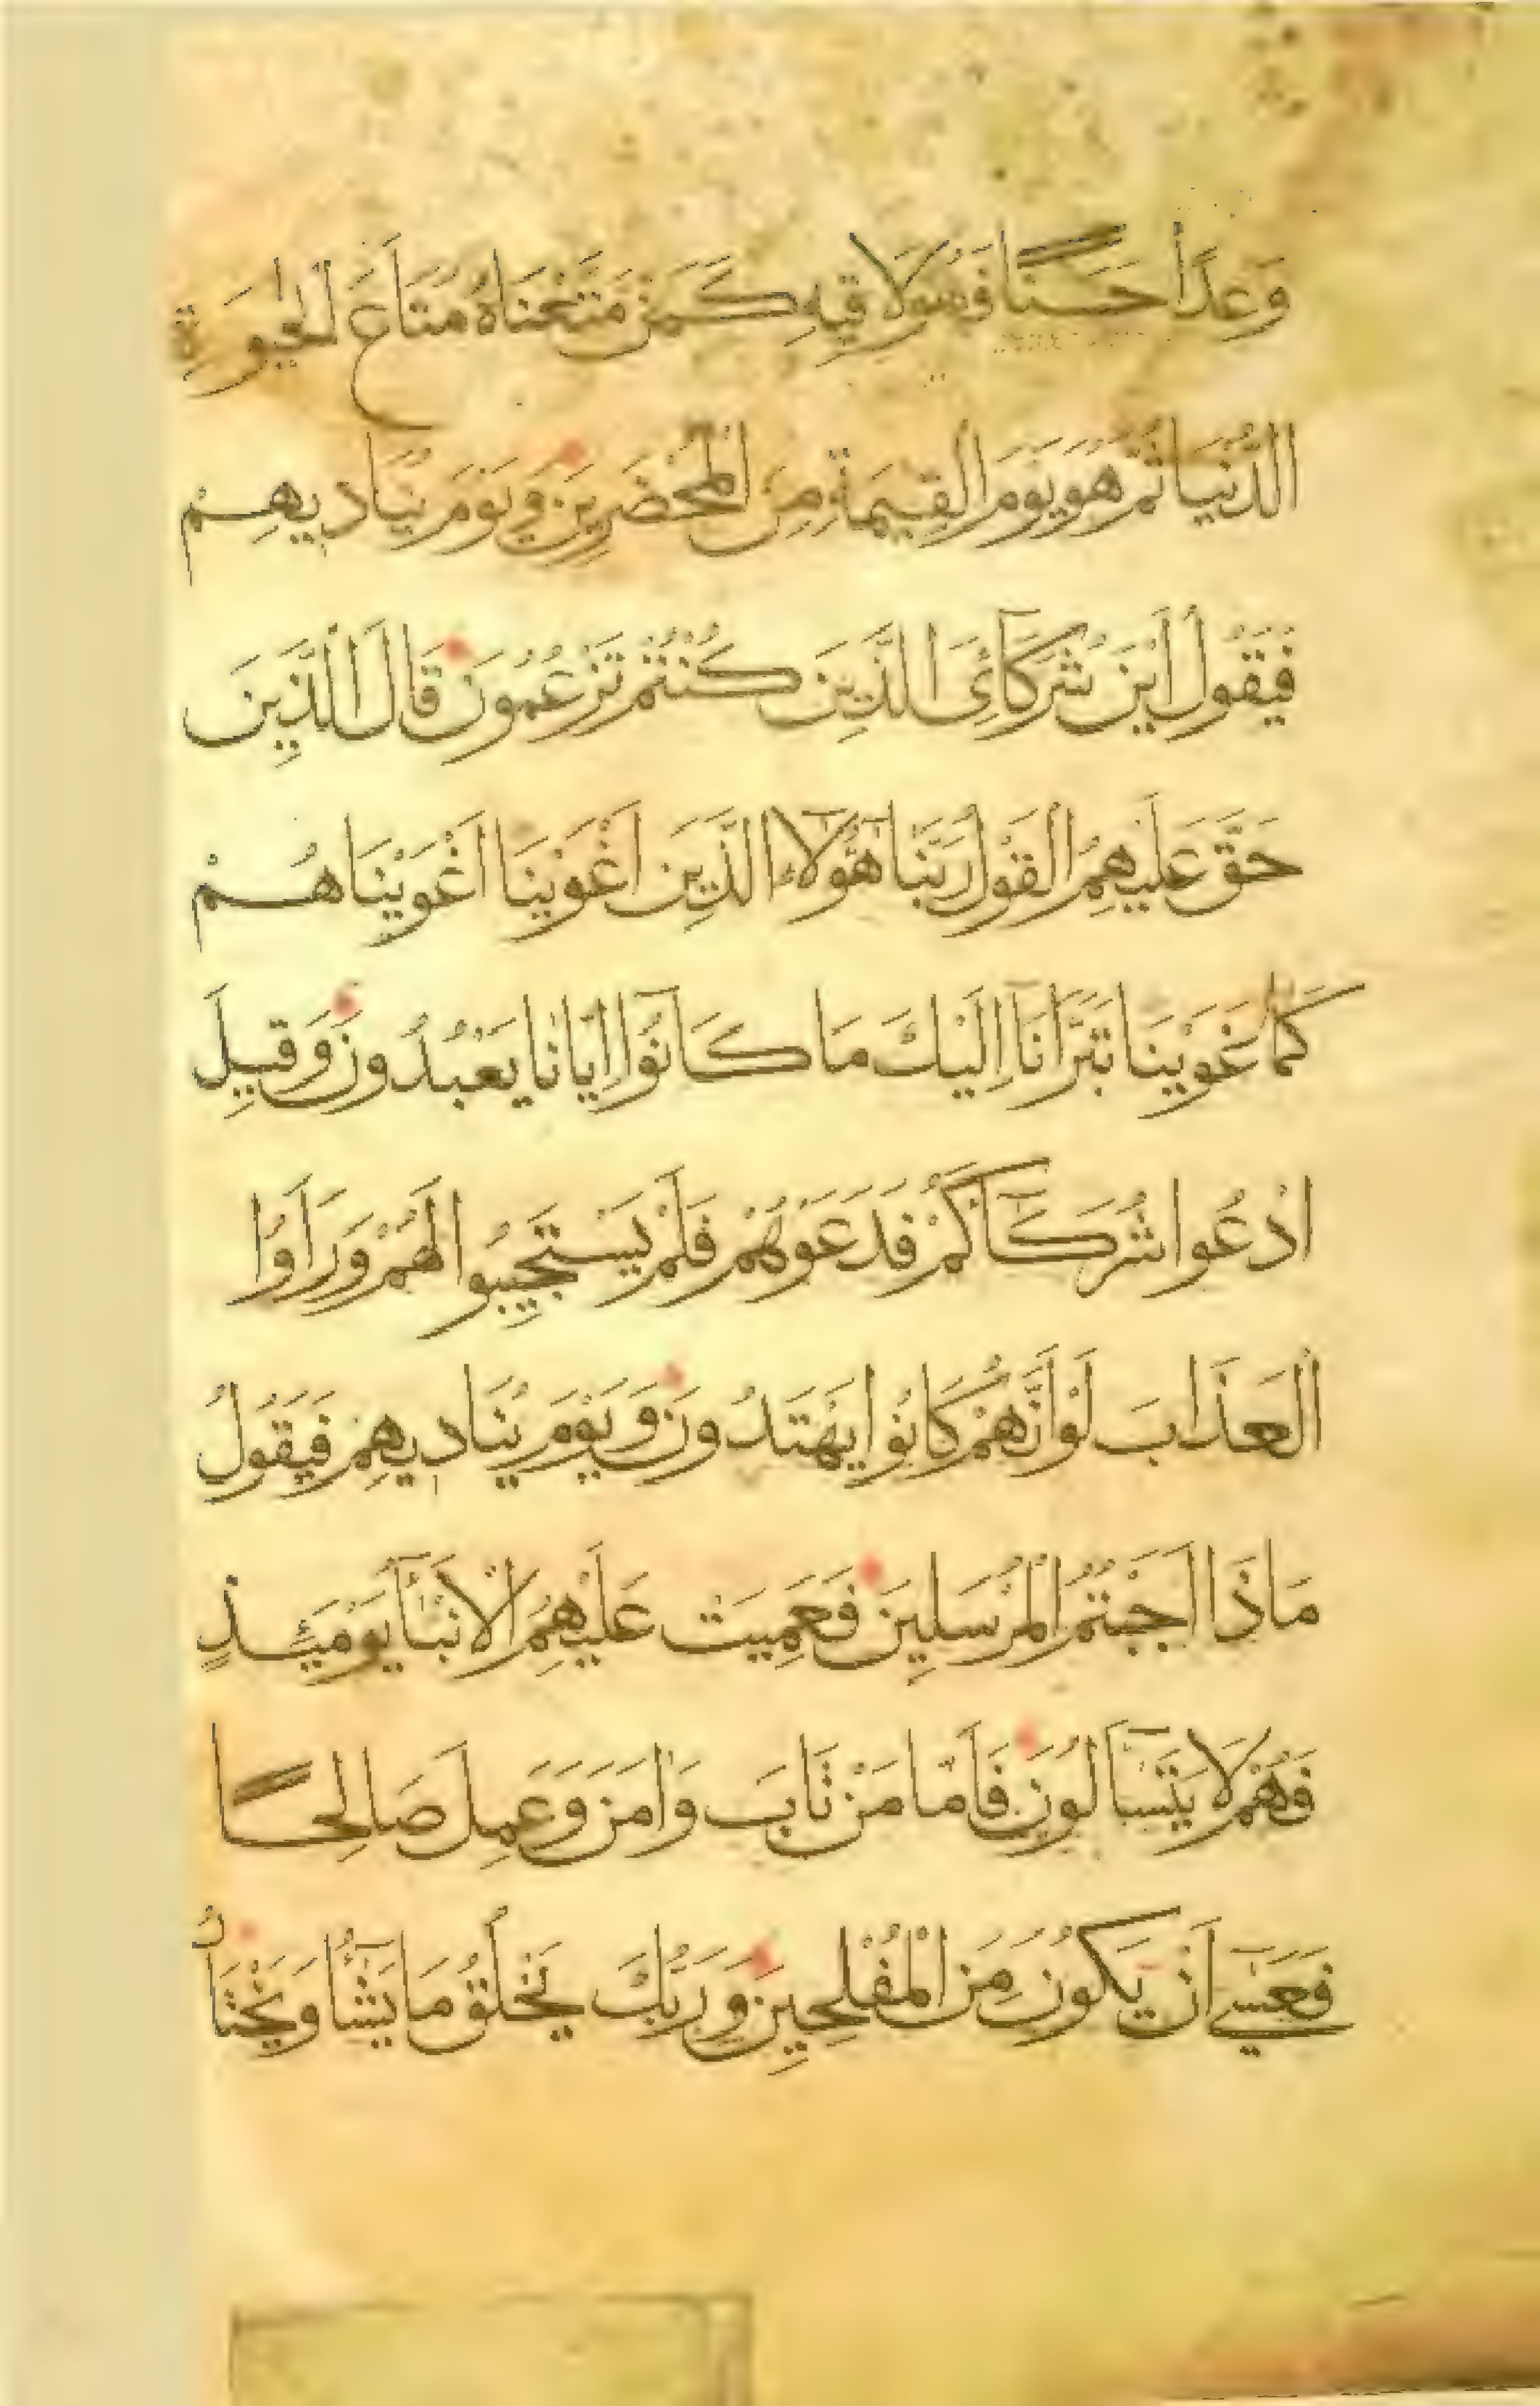 وَعدًا حَسَنًا فَهُوَ لَاقِيهِ كَمَنْ مَتَّعْنَاهُ مَتَاعَ الْحَيٰوةِ
الدُّنْيَا ثُمَّ هُوَ يَوْمَ الْقِيٰمَةِ مِنَ الْمُحْضَرِينَ وَيَوْمَ يُنَادِيهِمْ
فَيَقُولُ أَيْنَ شُرَكَآئِيَ الَّذِينَ كُنْتُمْ تَزْعُمُونَ قَالَ الَّذِينَ
حَقَّ عَلَيْهِمُ الْقَوْلُ رَبَّنَا هٰٓؤُلَاءِ الَّذِينَ اَغْوَيْنَا اَغْوَيْنَاهُمْ
كَمَا غَوَيْنَا تَبَرَّأْنَآ اِلَيْكَ مَا كَانُوٓا اِيَّانَا يَعْبُدُونَ وَقِيلَ
ادْعُوا شُرَكَآكُمْ فَدَعَوْهُمْ فَلَمْ يَسْتَجِيبُوا لَهُمْ وَرَاَوُا
الْعَذَابَ لَوْ اَنَّهُمْ كَانُوا يَهْتَدُونَ وَيَوْمَ يُنَادِيهِمْ فَيَقُولُ
مَاذَا اَجَبْتُمُ الْمُرْسَلِينَ فَعَمِيَتْ عَلَيْهِمُ الْاَنْبَآءُ يَوْمَئِذٍ
فَهُمْ لَا يَتَسَآلُونَ فَاَمَّا مَنْ تَابَ وَاٰمَنَ وَعَمِلَ صَالِحًا
فَعَسٰٓى اَنْ يَكُونَ مِنَ الْمُفْلِحِينَ وَرَبُّكَ يَخْلُقُ مَا يَشَآءُ وَيَخْتَارُ